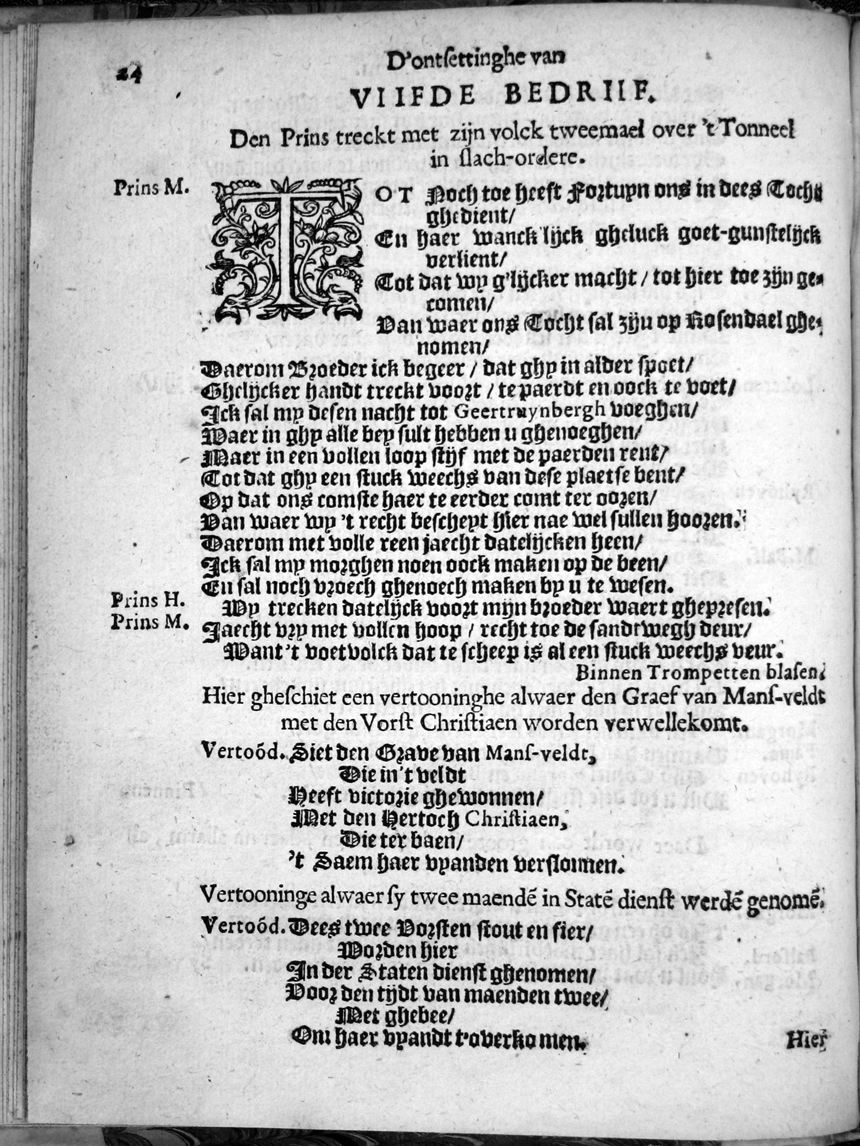 24
D'ontsettinghe van
VIIFDE BEDRIIF.
Den Prins treckt met zijn volck tweemael over 't Tonneel
in slach-ordere.
Prins M. TOT Noch toe heeft Fortuyn ons in dees Tocht
ghedient/
En haer wanck'lijck gheluck goet-gunstelijck
verlient/
Tot dat wy g'lijcker macht / tot hier toe zijn ge-
comen/
Van waer ons Tocht sal zijn op Rosendael ghe-
nomen/
Daerom Broeder ick begeer / dat ghy in alder spoet/
Ghelijcker handt treckt voort / te paerdt en oock te voet/
Ick sal my desen nacht tot Geertruynbergh voeghen/
Waer in ghy alle bey sult hebben u ghenoeghen/
Maer in een vollen loop stijf met de paerden rent/
Tot dat ghy een stuck weechs van dese plaetse bent/
Op dat ons comste haer te eerder comt ter ooren/
Van waer wy 't recht bescheyt hier nae wel sullen hooren.
Daerom met volle reen jaecht datelijcken heen/
Ick sal my morghen noen oock maken op de been/
En sal noch vroech ghenoech maken by u te wesen.
Prins H. Wy trecken datelijck voort mijn broeder waert ghepresen.
Prins M. Jaecht vry met vollen hoop / recht toe de sandtwegh deur/
Want 't voetvolck dat te scheep is al een stuck weechs veur.
Binnen Trompetten blasen.
Hier gheschiet een vertooninghe alwaer den Graef van Mans-veldt
met den Vorst Christiaen worden verwellekomt.
Vertoōd. Siet den Grave van Mans-veldt,
Die in't veldt
Heeft victorie ghewonnen/
Met den Hertoch Christiaen,
Die ter baen/
't Saem haer vyanden verslonnen.
Vertooninge alwaer sy twee maendē in Statē dienst werdē genomē.
Vertoōd. Dees twee Vorsten stout en fier/
Worden hier
In der Staten dienst ghenomen/
Voor den tijdt van maenden twee/
Met ghebee/
Om haer vyandt t'overkomen.
Hier